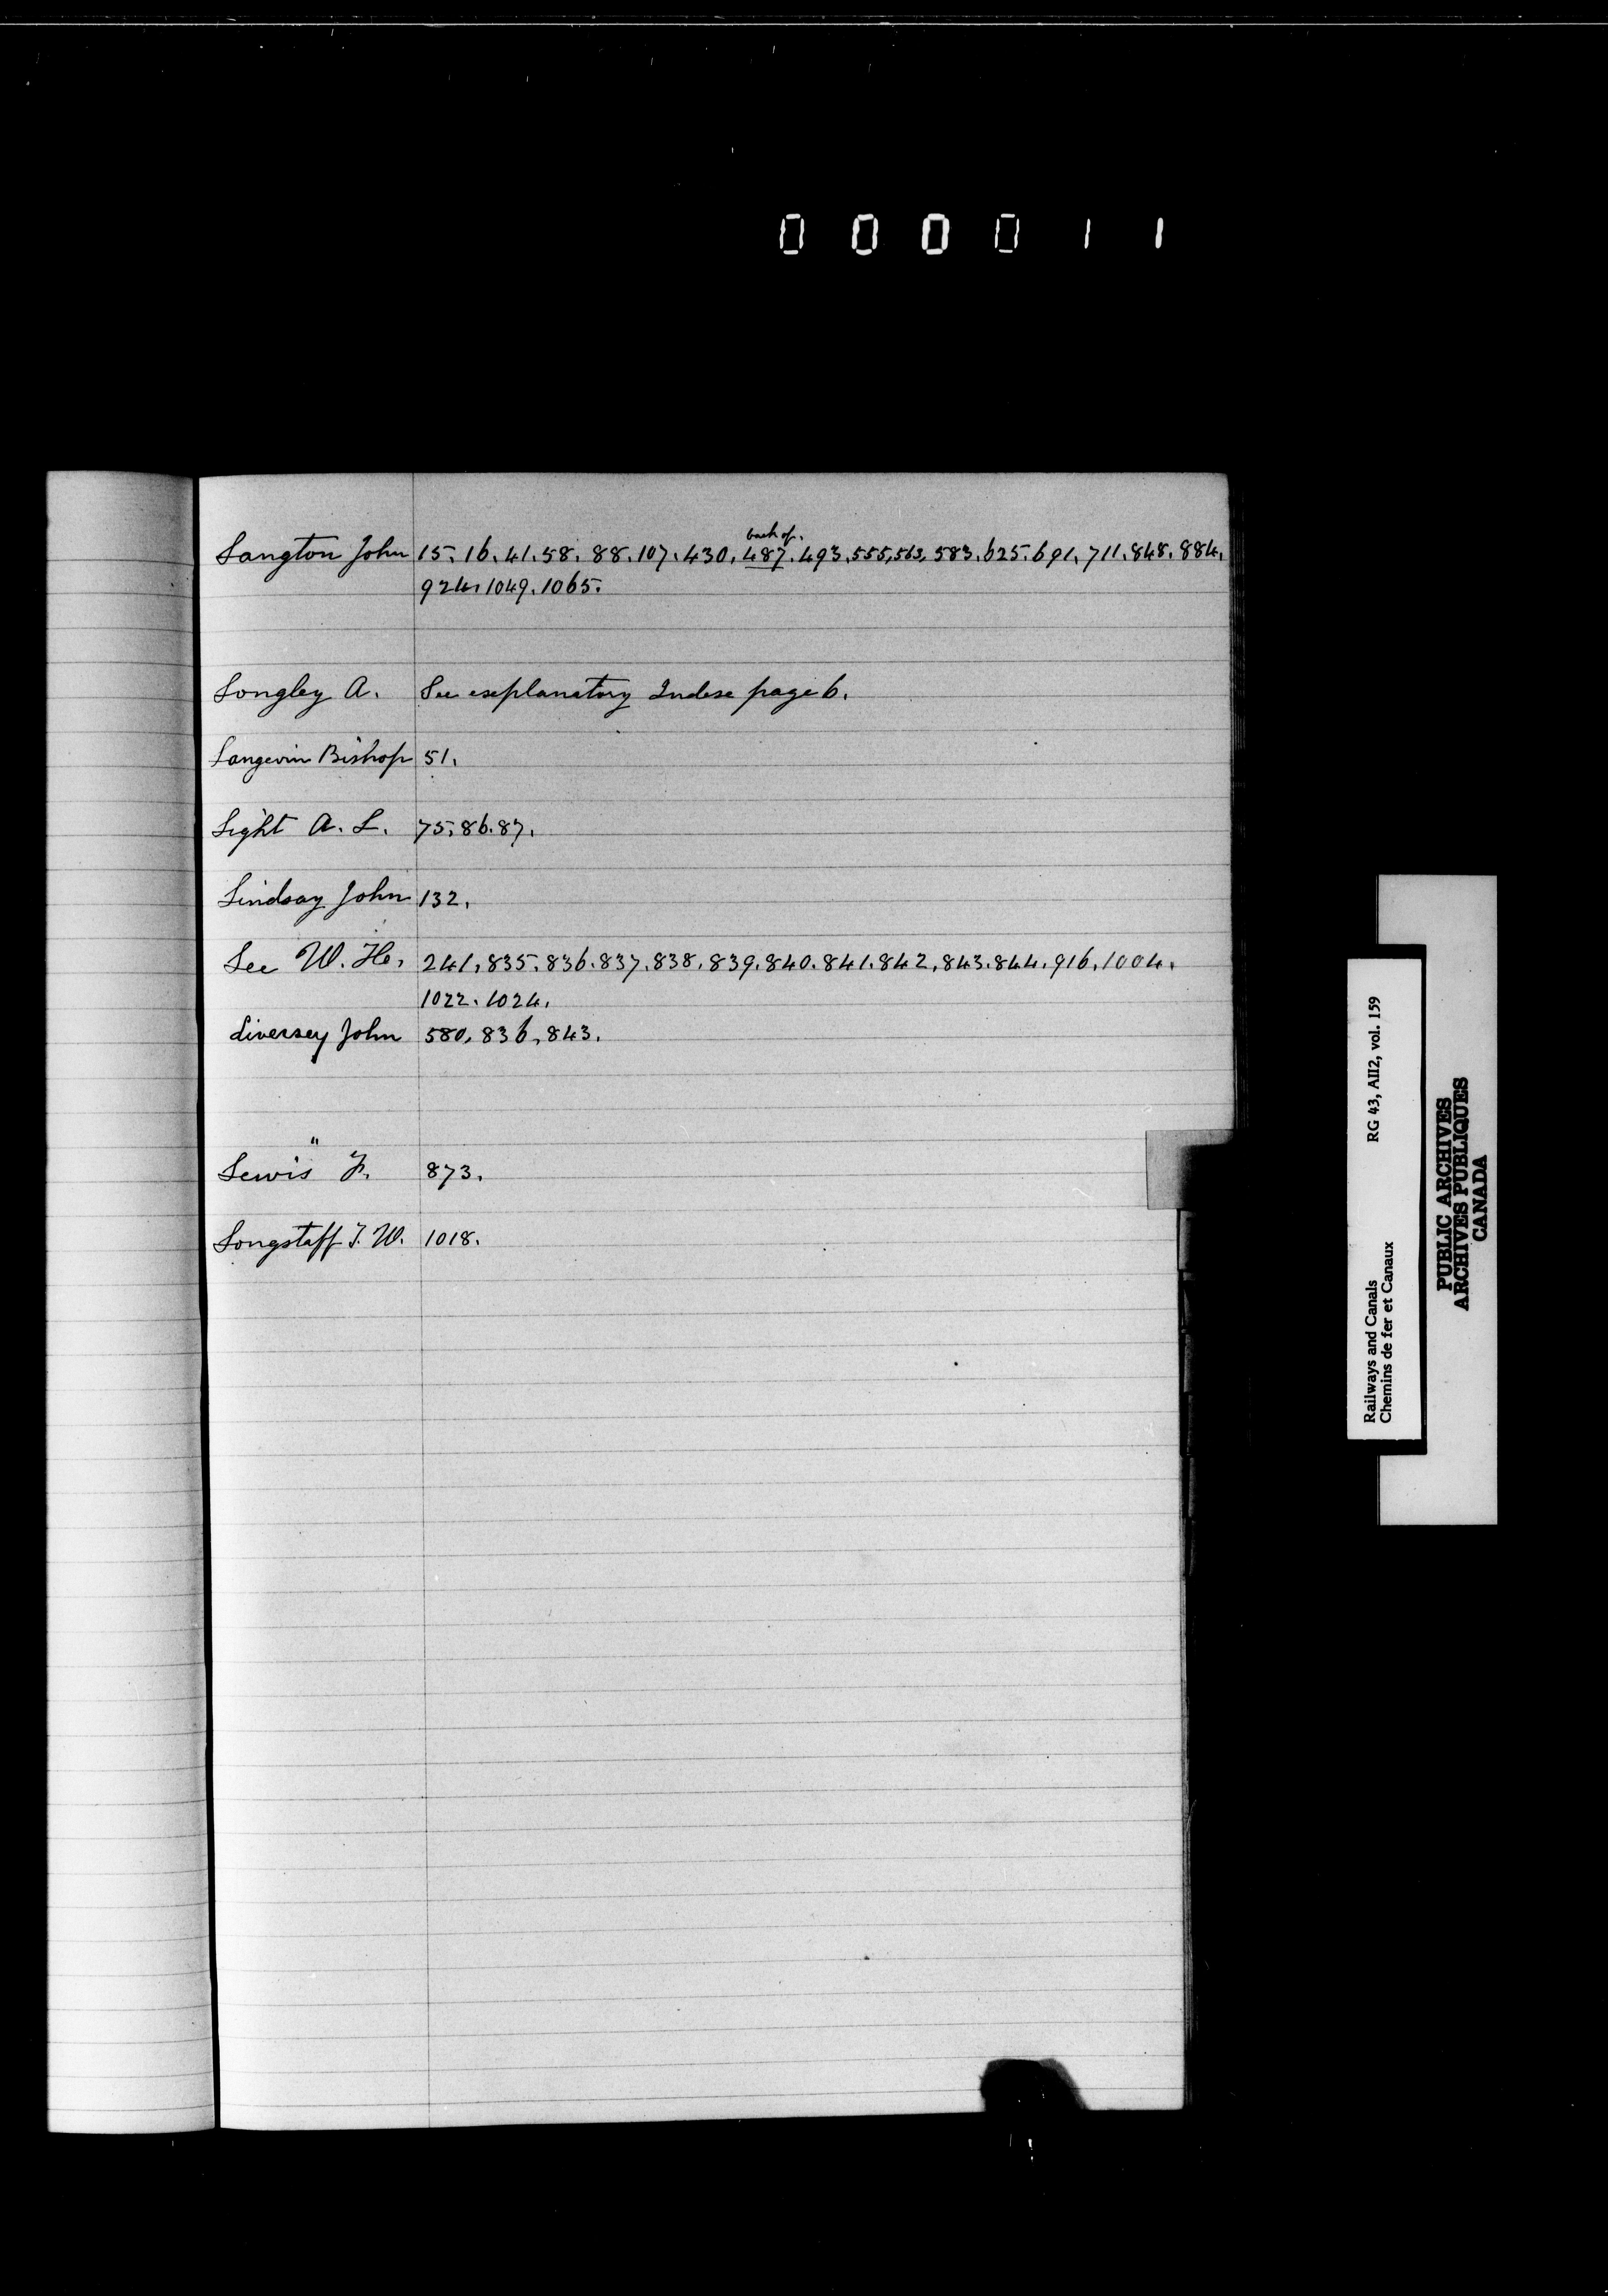 000011
back of.
Langton John 15. 16. 41. 58. 88. 107. 430. 487. 493. 555, 563, 583. 625. 691. 711. 848. 884.
924. 1049. 1065.
Longley A. See explanatory Index page 6.
Langevin Bishop 51.
Light A. L. 75. 86. 87.
Lindsay John 132.
Lee W. H. 241. 835. 836. 837. 838. 839. 840. 841. 842. 843. 844. 916. 1004.
1022. 1024.
Liversey John 580. 836. 843.
Lewis F. 873.
Longstaff T. W. 1018.
Railways and Canals RG 43, AII2, vol. 159
Chemins de fer et Canaux
PUBLIC ARCHIVES
ARCHIVES PUBLIQUES
CANADA